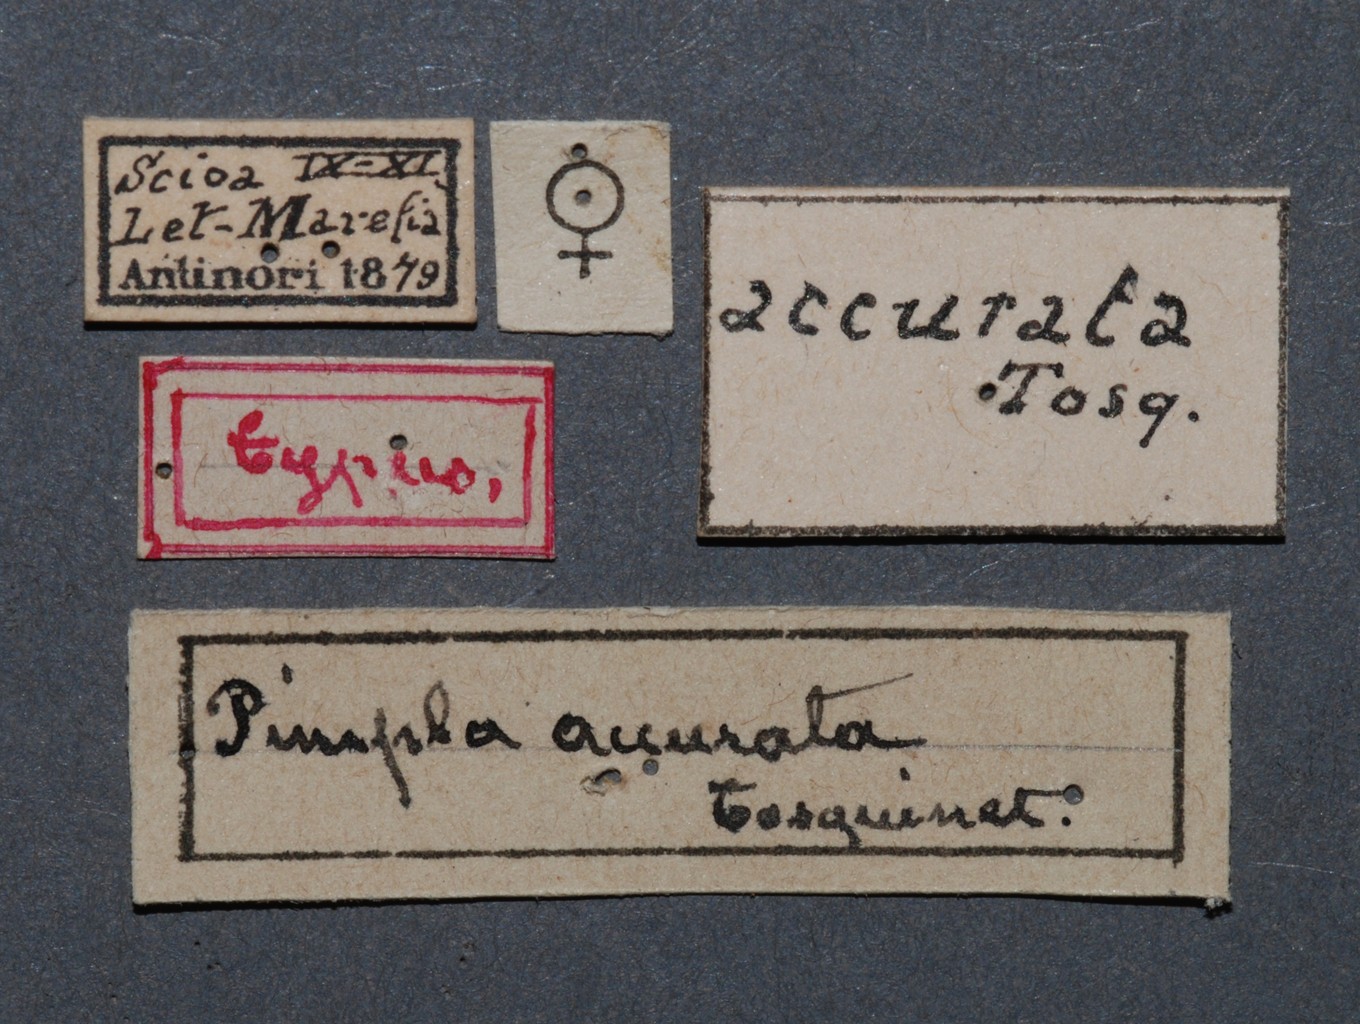 Scioa IX-XI.
Let-Marefia
Antinori 1879
♀
accurata
Tosq.
typus,
Pimpla accurata
Tosquinet.